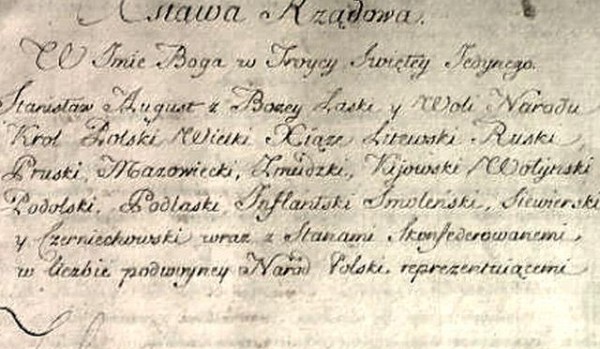 Ustawa Rządowa.
W Imie Boga w Troycy Swiętey Jedynego.
Stanisław August z Bozey Łaski y Woli Narodu
Krol Polski Wielki Xiąze Litewski Ruski,
Pruski, Mazowiecki, Zmudzki, Kijowski Wołynski
Podolski, Podlaski, Inflantski Smolenski, Siewierski
y Czerniechowski wraz z Stanami Skonfederowanemi,
w liczbie podwoyney Naród Polski reprezentuiącemi